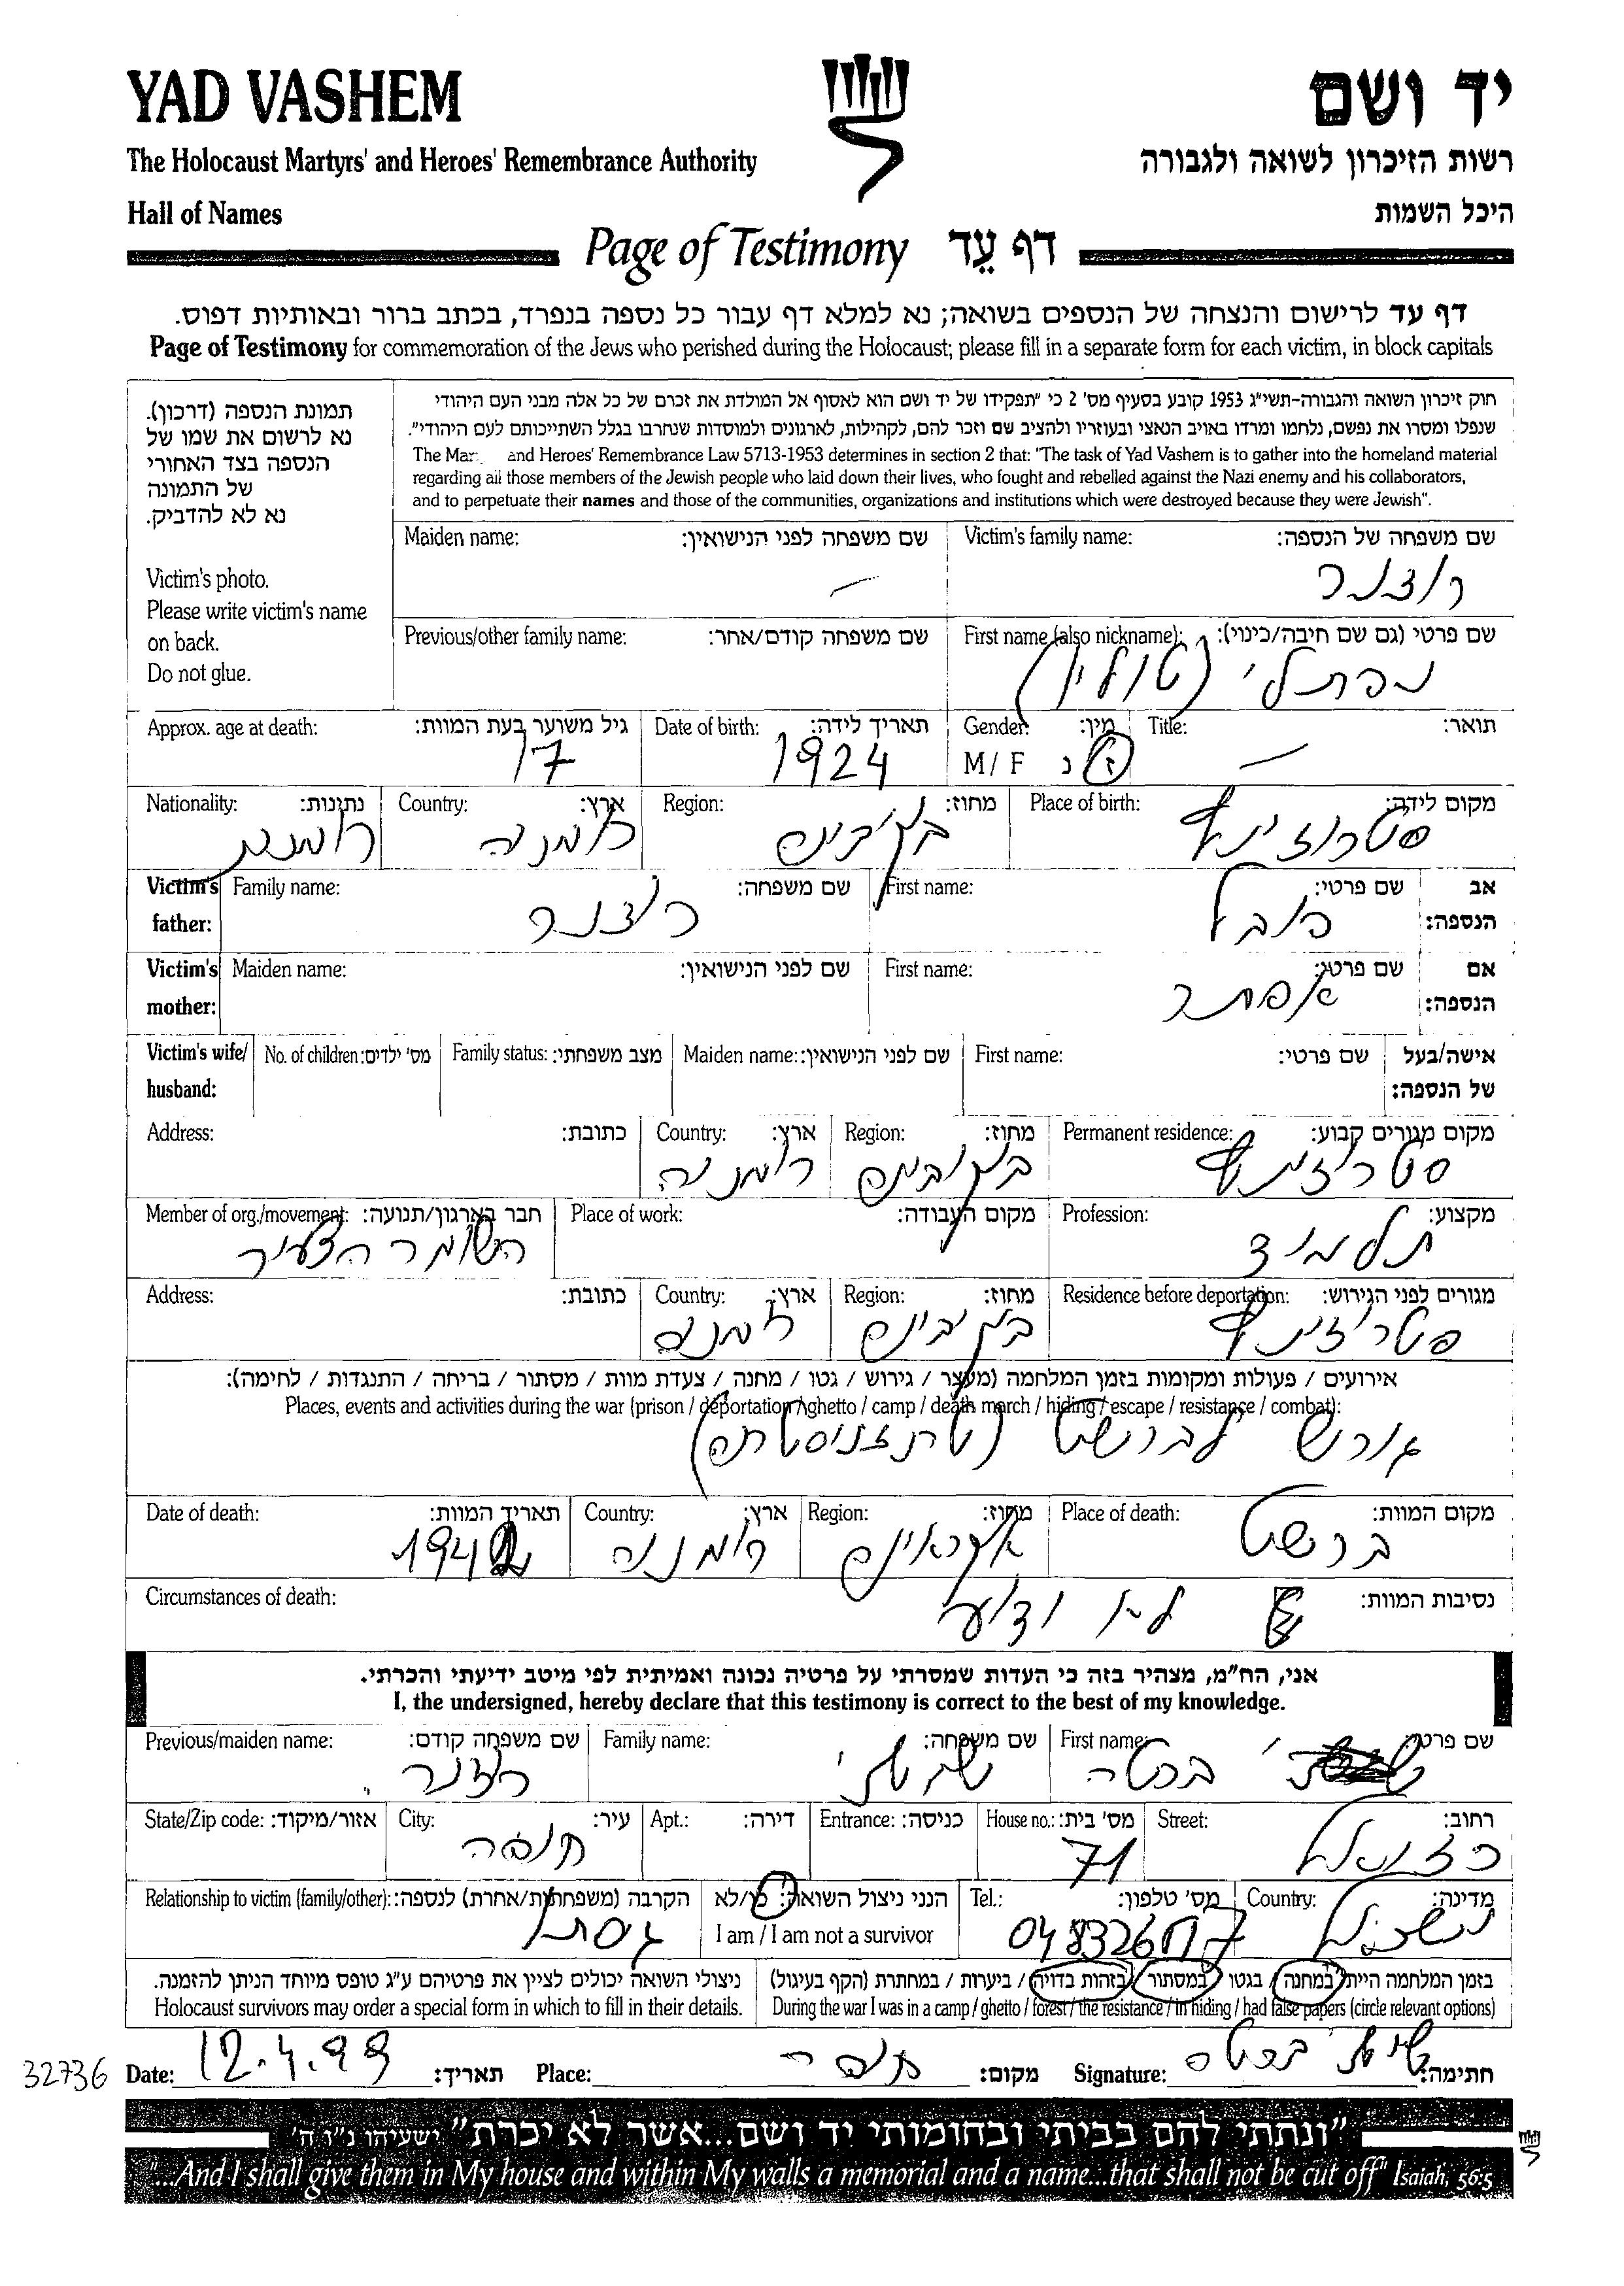 YAD VASHEM
יד ושם
The Holocaust Martyrs' and Heroes' Remembrance Authority
רשות הזיכרון לשואה ולגבורה
Hall of Names
היכל השמות
Page of Testimony דף עֵד
דף עד לרישום והנצחה של הנספים בשואה; נא למלא דף עבור כל נספה בנפרד, בכתב ברור ובאותיות דפוס.
Page of Testimony for commemoration of the Jews who perished during the Holocaust; please fill in a separate form for each victim, in block capitals
תמונת הנספה (דרכון).
נא לרשום את שמו של
הנספה בצד האחורי
של התמונה
נא לא להדביק.
Victim's photo.
Please write victim's name
on back.
Do not glue.
חוק זיכרון השואה והגבורה-תשי"ג 1953 קובע בסעיף מס' 2 כי "תפקידו של יד ושם הוא לאסוף אל המולדת את זכרם של כל אלה מבני העם היהודי
שנפלו ומסרו את נפשם, נלחמו ומרדו באויב הנאצי ובעוזריו ולהציב שם וזכר להם, לקהילות, לארגונים ולמוסדות שנחרבו בגלל השתייכותם לעם היהודי".
The Mar and Heroes' Remembrance Law 5713-1953 determines in section 2 that: "The task of Yad Vashem is to gather into the homeland material
regarding all those members of the Jewish people who laid down their lives, who fought and rebelled against the Nazi enemy and his collaborators,
and to perpetuate their names and those of the communities, organizations and institutions which were destroyed because they were Jewish".
Maiden name: שם משפחה לפני הנישואין: Victim's family name: שם משפחה של הנספה:
רוצנר
Previous/other family name: שם משפחה קודם/אחר: First name (also nickname): שם פרטי (גם שם חיבה/כינוי):
נפתלי (טולי)
Approx. age at death: גיל משוער בעת המוות: Date of birth: תאריך לידה: Gender: מין: Title: תואר:
17 1924 M / F ז נ
Nationality: נתינות: Country: ארץ: Region: מחוז: Place of birth: מקום לידה:
רומנית רומניה בוקובינה סטרוז'ינץ
Victim's father: Family name: שם משפחה: First name: שם פרטי: אב הנספה:
רוצנר
Victim's mother: Maiden name: שם לפני הנישואין: First name: שם פרטי: אם הנספה:
אסתר
Victim's wife/ husband: No. of children: מס' ילדים: Family status: מצב משפחתי: Maiden name: שם לפני הנישואין: First name: שם פרטי: אישה/בעל של הנספה:
Address: כתובת: Country: ארץ: Region: מחוז: Permanent residence: מקום מגורים קבוע:
רומניה בוקובינה סטרוז'ינץ
Member of org./movement: חבר בארגון/תנועה: Place of work: מקום העבודה: Profession: מקצוע:
השומר הצעיר תלמיד
Address: כתובת: Country: ארץ: Region: מחוז: Residence before deportation: מגורים לפני הגירוש:
רומניה בוקובינה סטרוז'ינץ
אירועים / פעולות ומקומות בזמן המלחמה (מעצר / גירוש / גטו / מחנה / צעדת מוות / מסתור / בריחה / התנגדות / לחימה):
Places, events and activities during the war (prison / deportation / ghetto / camp / death march / hiding / escape / resistance / combat):
גורש לברשט (טרנזניסטריה)
Date of death: תאריך המוות: Country: ארץ: Region: מחוז: Place of death: מקום המוות:
1942 רומניה אוקראינה ברשט
Circumstances of death: נסיבות המוות:
לא ידוע
אני, הח"מ, מצהיר בזה כי העדות שמסרתי על פרטיה נכונה ואמיתית לפי מיטב ידיעתי והכרתי.
I, the undersigned, hereby declare that this testimony is correct to the best of my knowledge.
Previous/maiden name: שם משפחה קודם: Family name: שם משפחה: First name: שם פרטי:
רוזנר ברטה
State/Zip code: אזור/מיקוד: City: עיר: Apt.: דירה: Entrance: כניסה: House no.: מס' בית: Street: רחוב:
חיפה 71
Relationship to victim (family/other): הקרבה (משפחתית/אחרת) לנספה: הנני ניצול השואה: כן/לא I am / I am not a survivor Tel.: מס' טלפון: Country: מדינה:
גיסתו ישראל
ניצולי השואה יכולים לציין את פרטיהם ע"ג טופס מיוחד הניתן להזמנה. בזמן המלחמה הייתי במחנה / בגטו / במסתור / בזהות בדויה / ביערות / במחתרת (הקף בעיגול)
Holocaust survivors may order a special form in which to fill in their details. During the war I was in a camp / ghetto / forest / the resistance / in hiding / had false papers (circle relevant options)
32736 Date: 12.4.99 תאריך: Place: חיפה מקום: Signature: ברטה חתימה:
"ונתתי להם בביתי ובחומותי יד ושם...אשר לא יכרת" ישעיהו נ"ו ה'
"...And I shall give them in My house and within My walls a memorial and a name...that shall not be cut off" Isaiah, 56:5